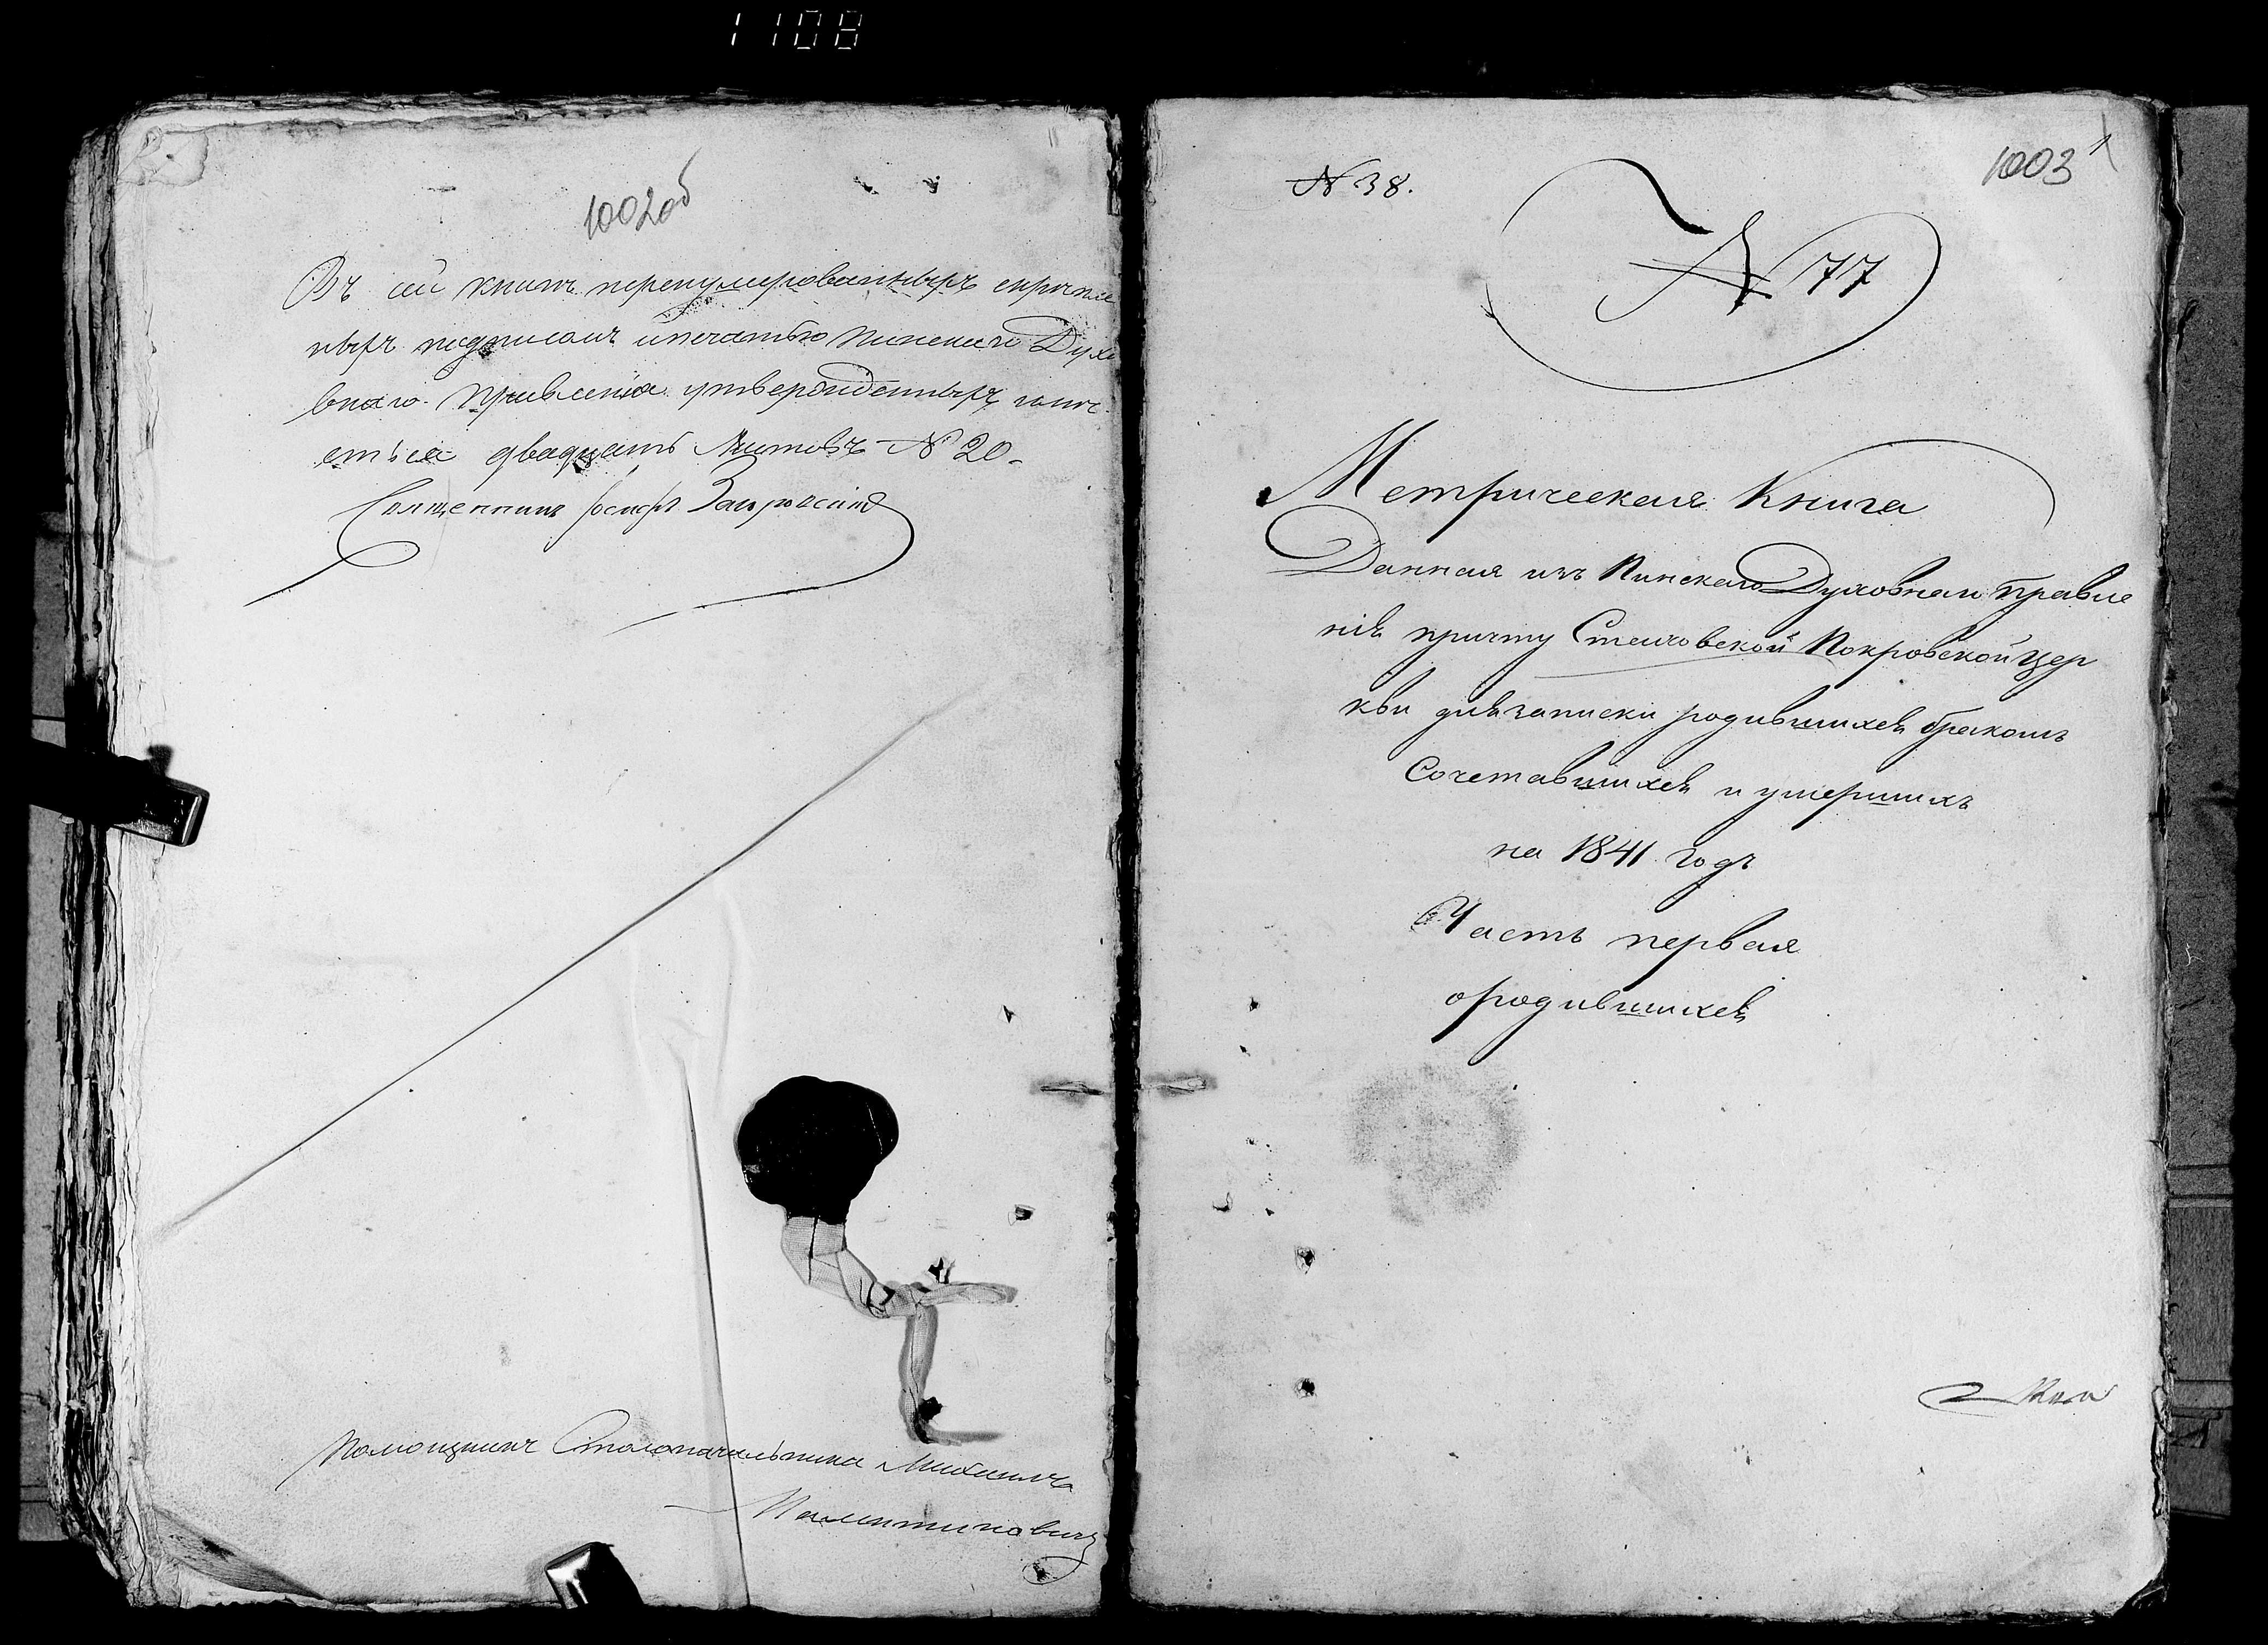 1108
1002об
Въ сей книгѣ перенумерованныхъ скрѣпле
ныхъ подписомъ и печатью Пинскаго Духо
внаго Правленія утвержденныхъ имѣ
ется двадцать листовъ № 20
Священникъ Іосифъ
Помощникъ Столоначальника Михаилъ
1003
1
№ 38.
№ 77
Метрическая Книга
Данная изъ Пинскаго Духовнаго Правле
нія причту Стаховской Покровской Цер
кви для записки родившихся бракомъ
Сочетавшихся и умершихъ
на 1841 годъ
Часть первая
о родившихся